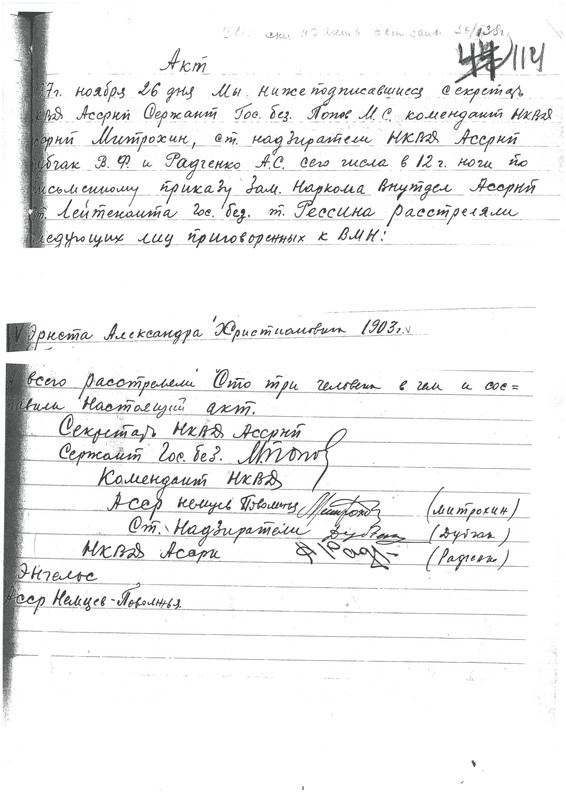 44 114
Акт
7г. ноября 26 дня Мы нижеподписавшиеся секретарь
НКВД Ассрнп Сержант Гос. без. Попов М.С. комендант НКВД
Митрохин, ст. надзиратели НКВД Ассрнп
В. Ф. и Радченко А.С. сего числа в 12 г. ночи по
исьменному приказу Зам. Наркома Внутдел Ассрнп
т. Лейтенанта Гос. без. т. Рессина расстреляли
ледующих лиц приговоренных к ВМН:
V Эрнста Александра Христиановича 1903г. v
всего расстреляли Сто три человека в чем и сос=
тавили настоящий акт.
Секретарь НКВД Ассрнп
Сержант Гос. без. МПопов
Комендант НКВД
Асср немцев Поволжья Митрохин (Митрохин)
Ст. Надзиратели Дубчак (Дубчак)
НКВД Ассрн (Радченко)
Энгельс
Асср Немцев-Поволжья.